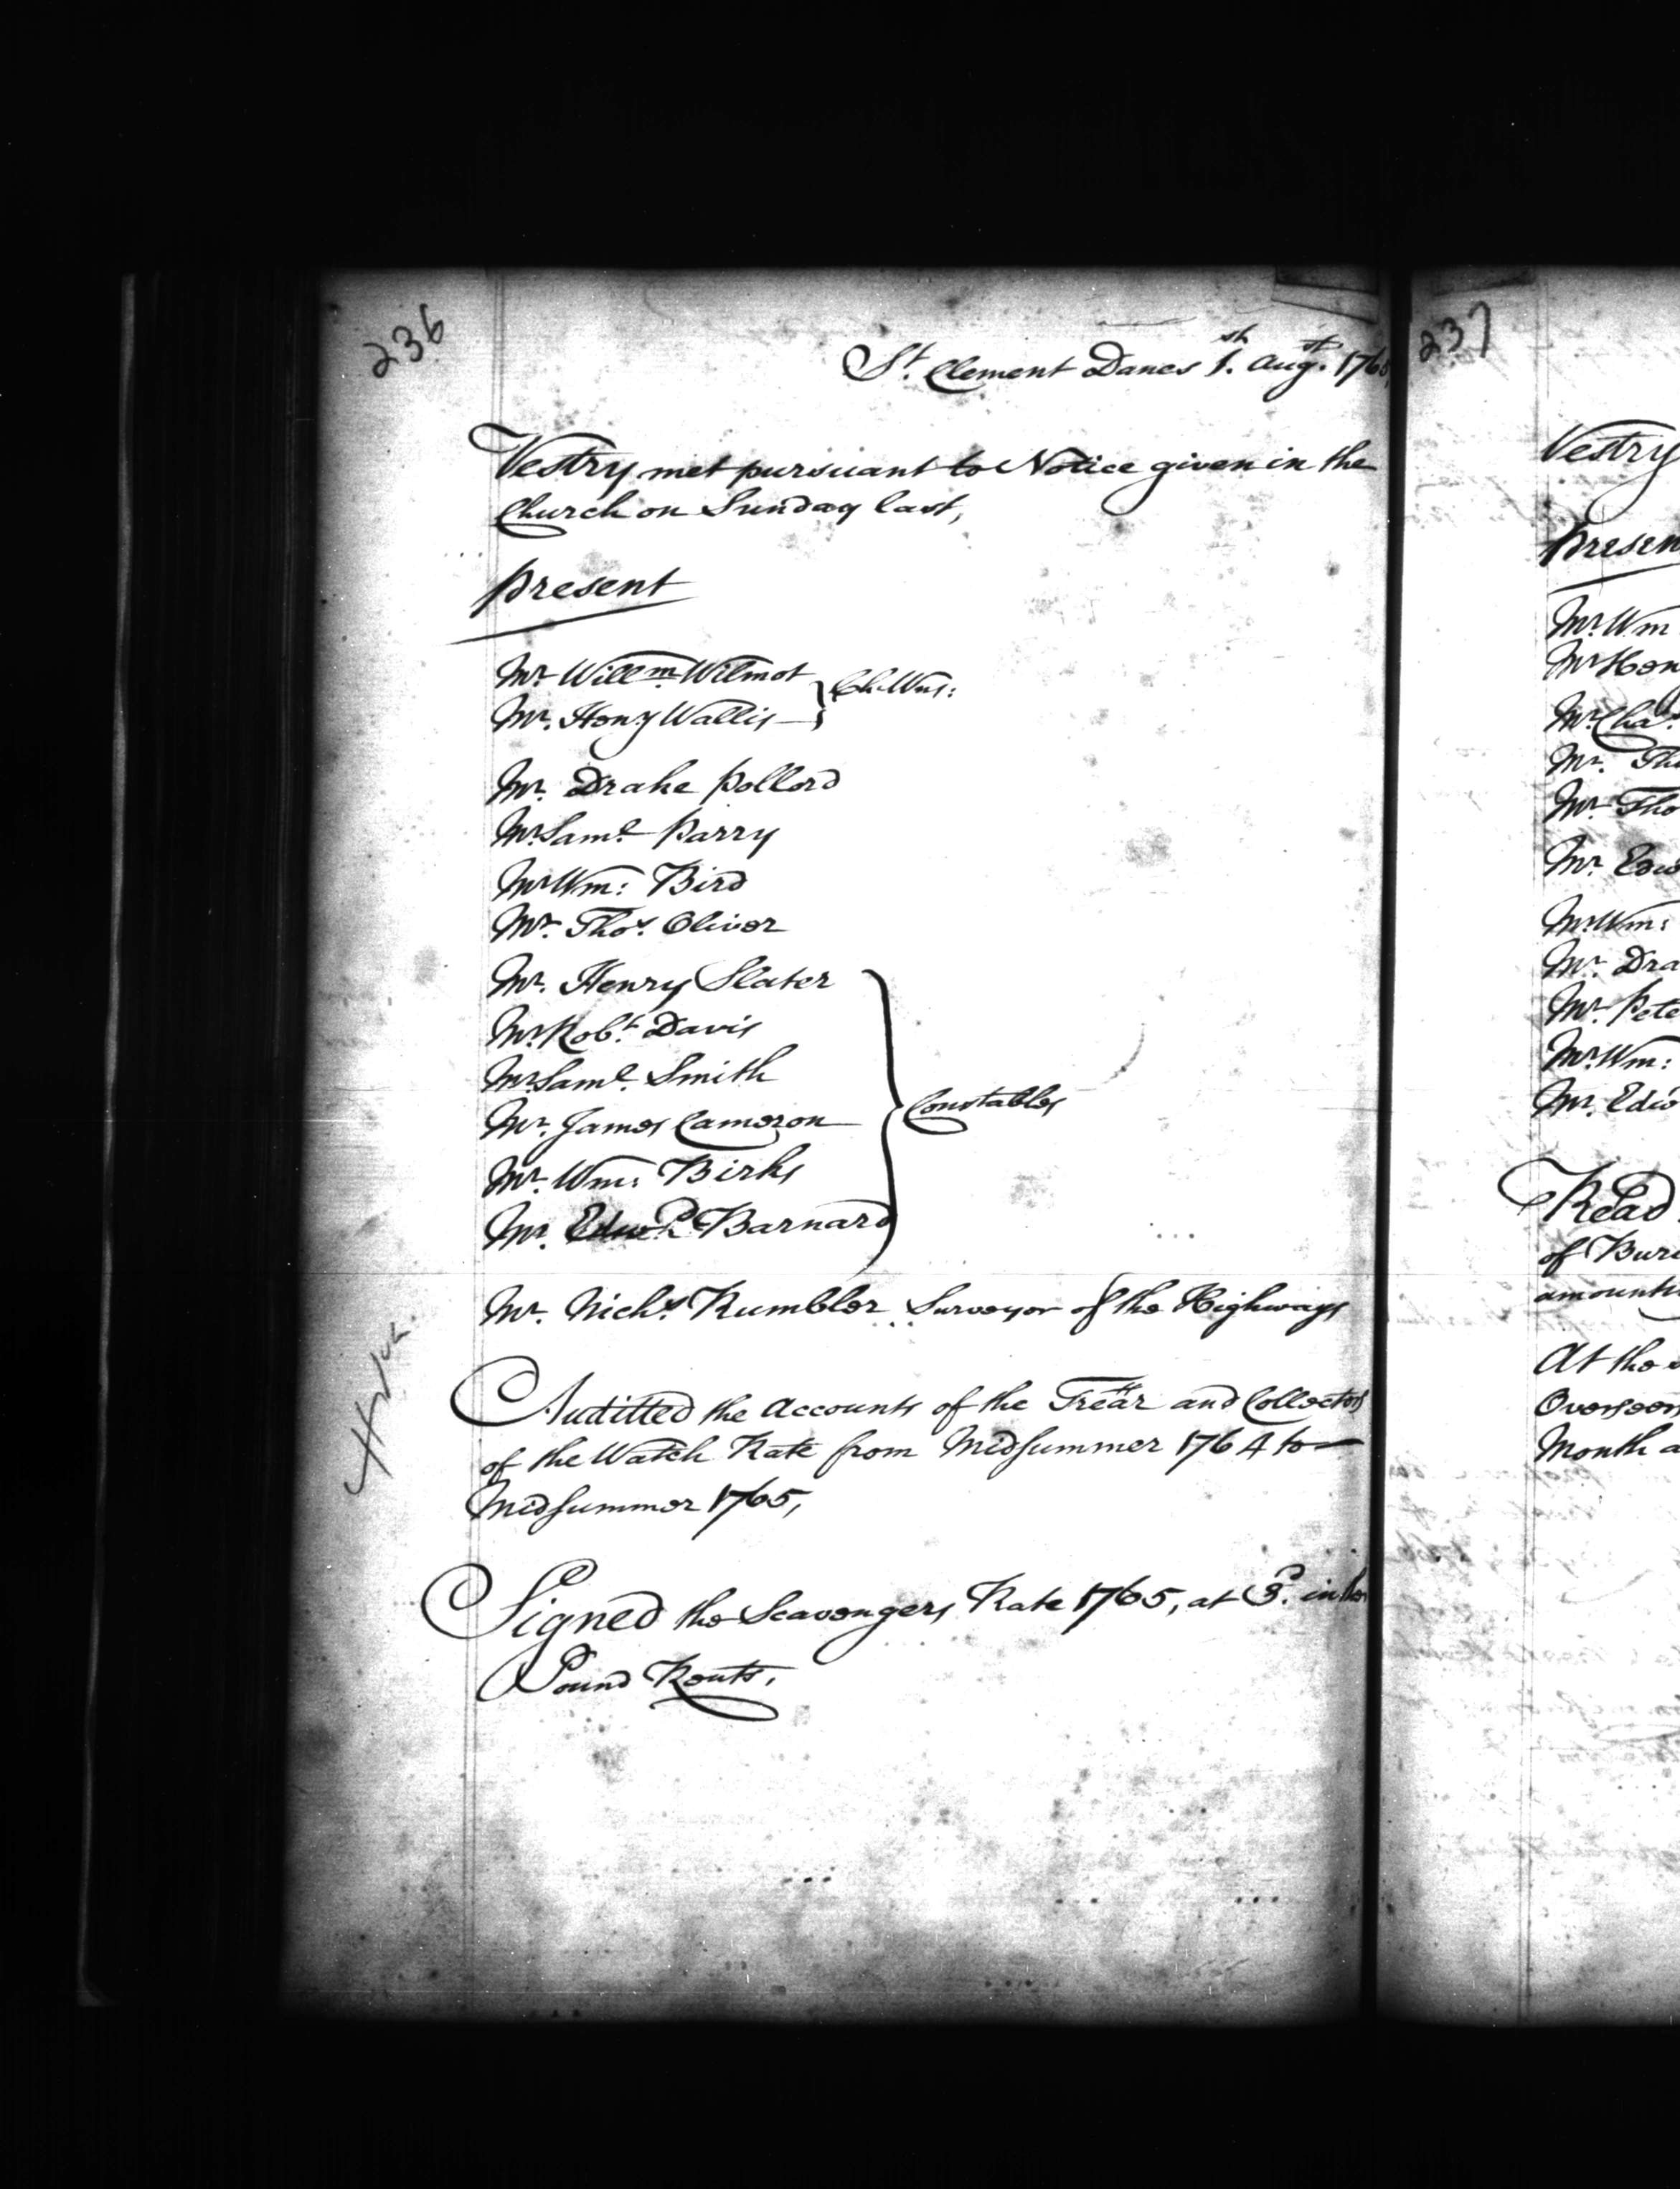 236
St. Clement Danes 1st. Augst. 1765,
Vestry met pursuant to Notice given in the
Church on Sunday last,
Present
Mr. Willm. Wilmot
Mr. Heny Wallis } Ch:Wns:
Mr. Drake Pollord
Mr Saml. Parry
Mr Wm: Bird
Mr. Thos. Oliver
Mr. Henry Slater
Mr. Robt. Davis
Mr Saml. Smith
Mr. James Cameron } Constables
Mr. Wm: Birks
Mr. Edwd. Barnard
Mr. Nichs. Rumbler Surveyor of the Highways
Auditted the Accounts of the Trear and Collectors
of the Watch Rate from Midsummer 1764 to
Midsummer 1765,
Signed the Scavengers Rate 1765, at 3d. in the
Pound Rents.
237
Vestry
Presen
Mr. Wm
Mr Hen
Mr. Chas.
Mr. Tho
Mr. Tho
Mr. Edw
Mr. Wm:
Mr. Dra
Mr. Pete
Mr. Wm:
Mr. Edw
Read
of Buri
amounti
At the
Overseers
Month a